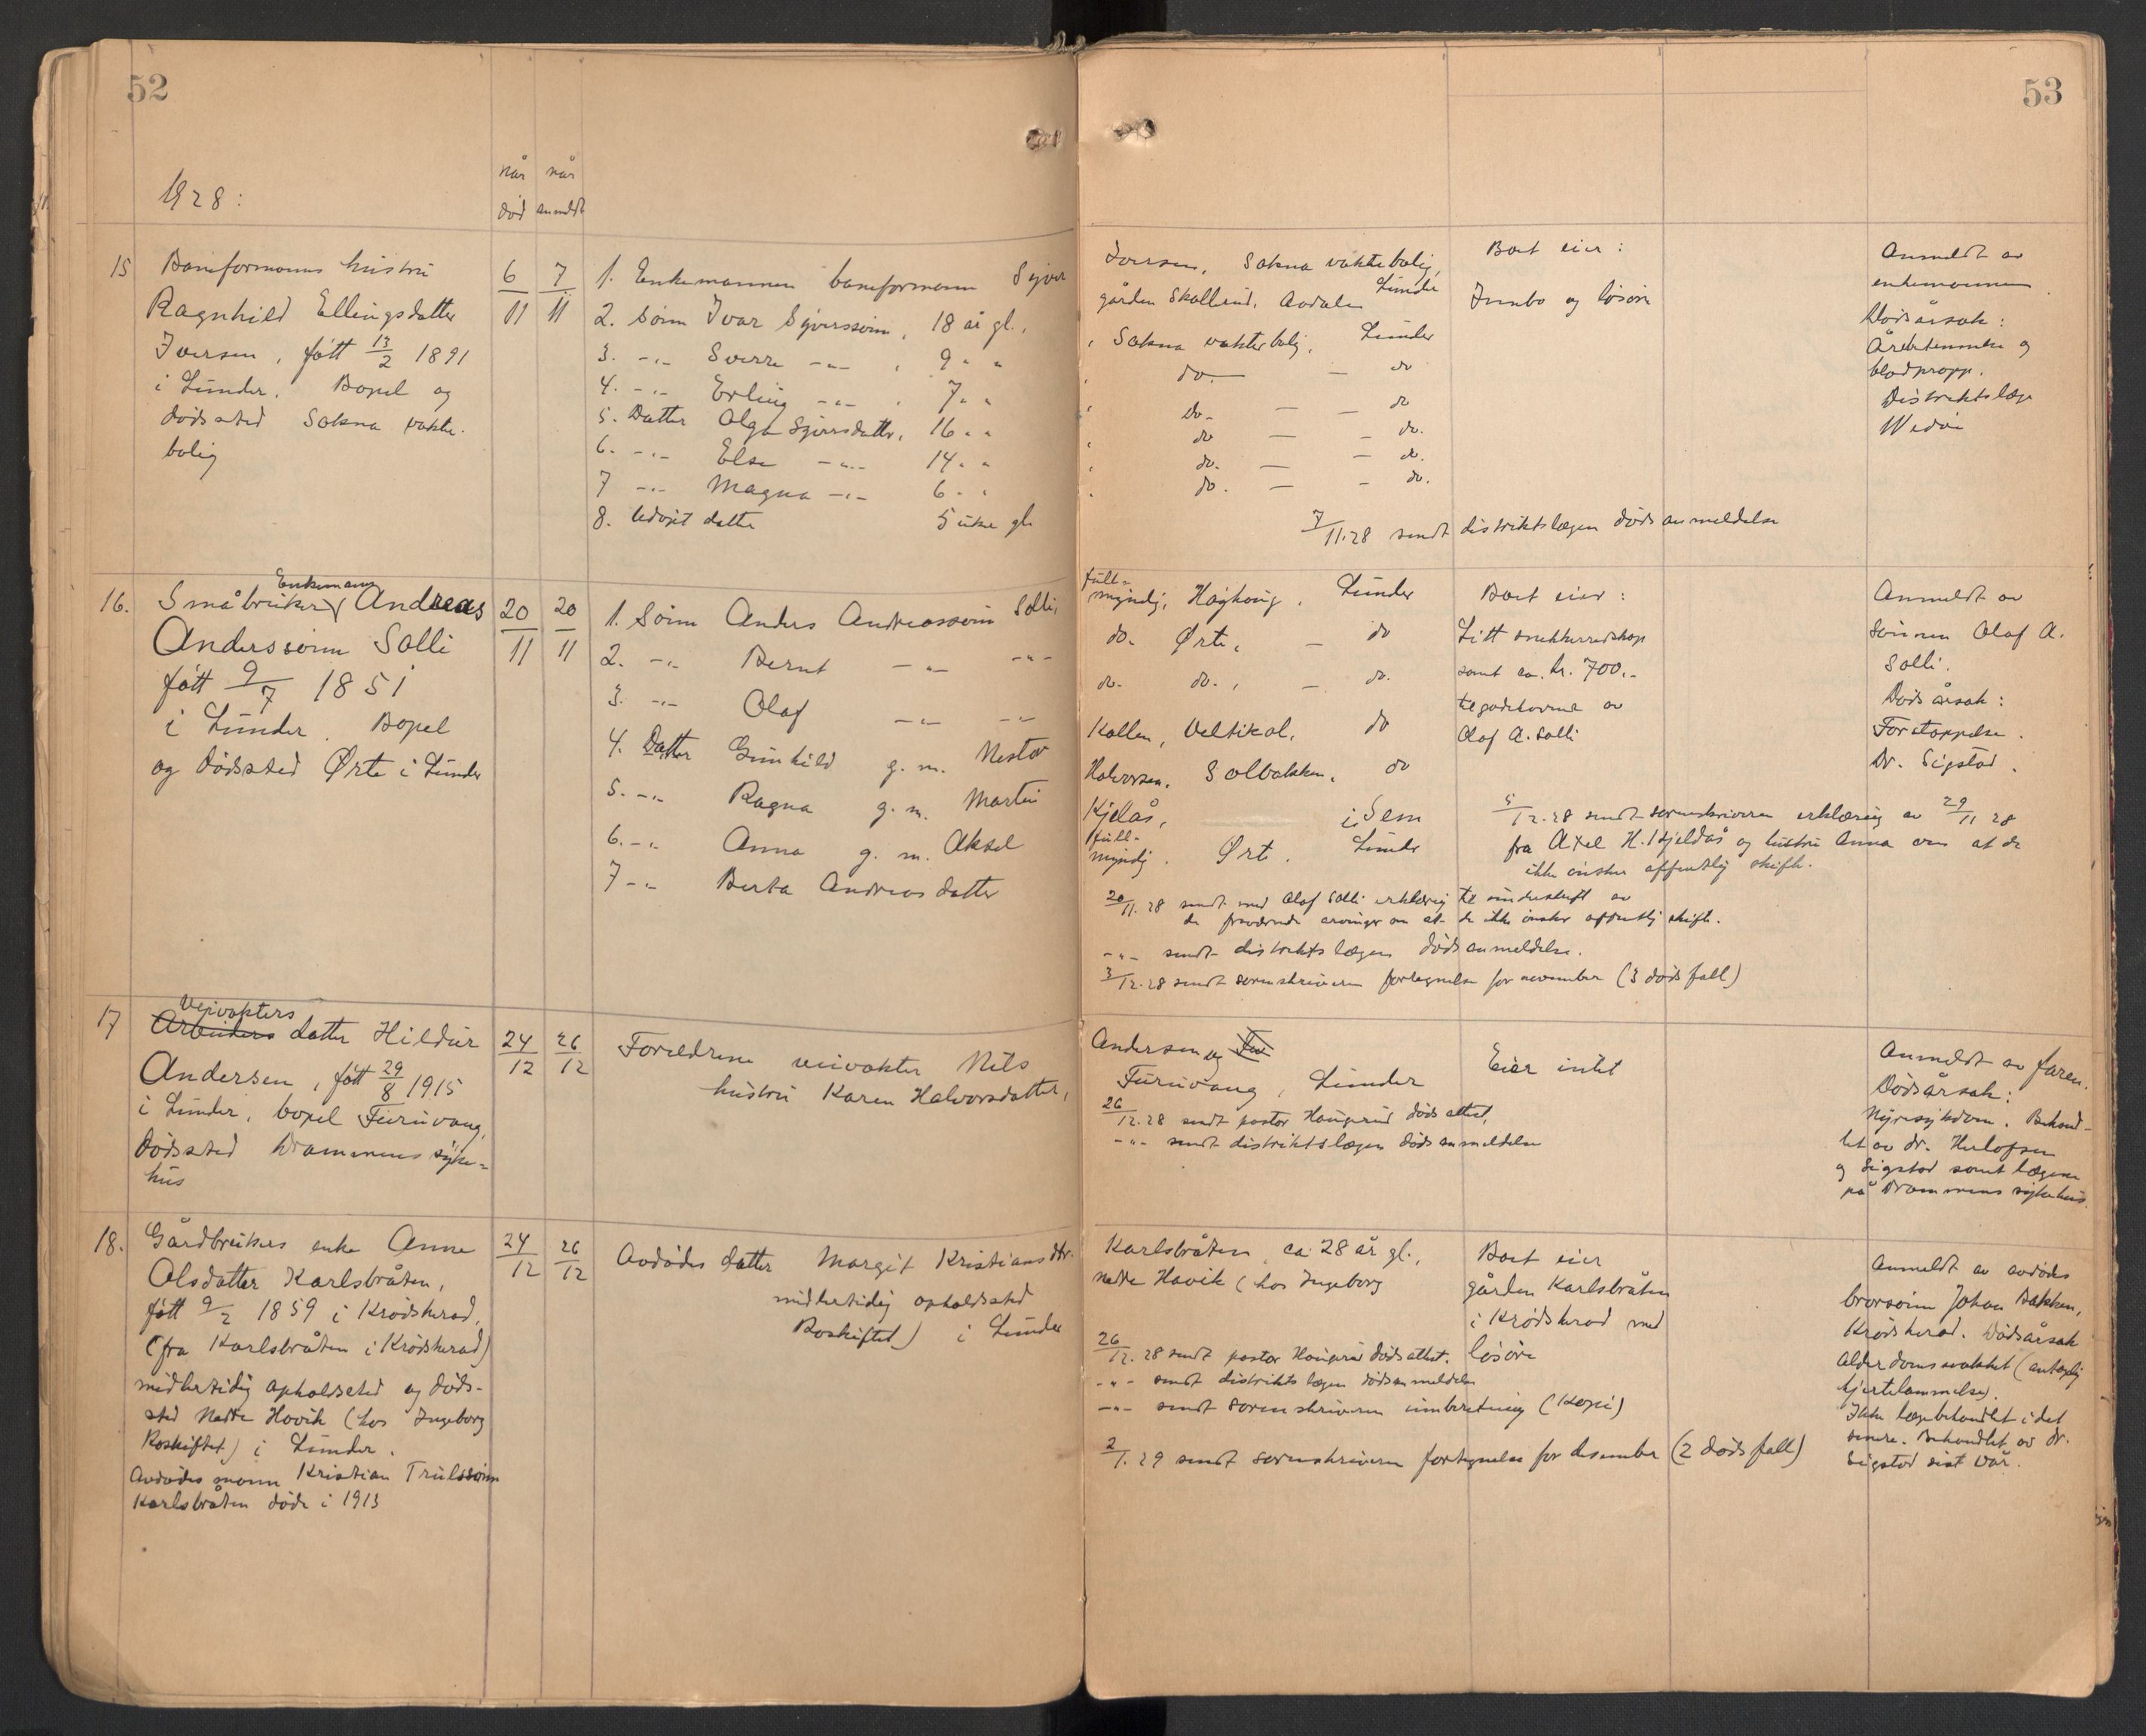 52
1928:
når når
død anmeldt
15 Baneformanns hustru
Ragnhild Ellingsdatter
Iversen, født 13/2 1891
i Lunder. Bopel og
dødssted Sokna vakter-
bolig
6/11 7/11
1. Enkemannen baneformann Syver
2. Sønn Ivar Syverssønn, 18 år gl.,
3. -"- Sverre -"- , 9 " "
4. -"- Erling -"- , 7 " "
5. Datter Olga Syversdatter, 16 " "
6. -"- Else -"- 14 " "
7 -"- Magna -"- 6 " "
8. Udøpt datter 5 uker gl.
16. Småbruker Enkemann Andreas
Anderssønn Solli
født 9/7 1851
i Lunder. Bopel
og dødssted Ørte i Lunder
20/11 20/11
1. Sønn Anders Andreassønn Solli,
2. -"- Bernt -"- -"-
3. -"- Olaf -"- -"-
4. Datter Gunhild g. m. Nestor
5. -"- Ragna g. m. Martin
6. -"- Anna g. m. Aksel
7 -"- Berta Andreasdatter
17 Veivokters
Arbeiders datter Hildur
Andersen, født 29/8 1915
i Lunder, bopel Furuvang,
Dødssted Drammens syke-
hus
24/12 26/12
Foreldrene veivokter Nils
hustru Karen Halvorsdatter,
18. Gårdbrukers enke Anne
Olsdatter Karlsbråten,
født 9/2 1859 i Krødsherad,
(fra Karlsbråten i Krødsherad)
midlertidig opholdssted og døds-
sted Nedre Hovik (hos Ingeborg
Roskiftet) i Lunder.
Avdødes mann Kristian Trulssønn
Karlsbråten døde i 1913
24/12 26/12
Avdødes datter Margit Kristiansdtr.
midlertidig opholdssted
Roskiftet) i Lunder
53
Iversen, Sokna vakterbolig, Lunder
gården Skollerud, Aadalen
, Sokna vakterbolig, Lunder
, do. — do
, do. — — do
, do — — do.
, do. — — do.
, do. — — do.
7/11.28 sendt distriktslægen dødsanmeldelse
Boet eier:
Innbo og løsøre
Anmeldt av
enkemannen.
Dødsårsak:
Årebetennelse og
blodpropp.
Distriktslæge
full-
myndig, Høghaug, Lunder
do. Ørte, — do
do. do., — do.
Kollen, Veltikol, do
Halvorsen, Solbakken, do
Kjelås, i Sem
full-
myndig. Ørte. Lunder
20/11.28 sendt med Olaf Solli erklæring til underskrift av
de fraværende arvinger om at de ikke ønsker offentlig skifte.
-"- sendt distriktslægen dødsanmeldelse.
3/12.28 sendt sorenskriveren fortegnelse for november (3 dødsfall)
Boet eier:
Litt snekkerredskap
samt ca. kr. 700.-
tilgodehavende av
Olaf A. Solli
5/12.28 sendt sorenskriveren erklæring av 29/11 28
fra Axel H. Kjeldås og hustru Anna om at de
ikke ønsker offentlig skifte.
Anmeldt av
sønnen Olaf A.
Solli.
Dødsårsak:
Forstoppelse.
Dr. Sigstad.
Andersen og
Furuvang, Lunder
26/12.28 sendt pastor Haugerud dødsattest,
-"- sendt distriktslægen dødsanmeldelse
Eier intet
Anmeldt av faren.
Dødsårsak:
Nyresykdom. Behand-
let av dr. Herlofsen
og Sigstad samt lægene
på Drammens sykehus.
Karlsbråten, ca. 28 år gl.,
Nedre Hovik (hos Ingeborg
26/12.28 sendt pastor Haugerud dødsattest.
-"- sendt distriktslægen dødsanmeldelse
-"- sendt sorenskriveren innberetning (Kopi)
2/1.29 sendt sorenskriveren fortegnelse for desember (2 dødsfall)
Boet eier
gården Karlsbråten
i Krødsherad med
løsøre
Anmeldt av avdødes
brorsønn Johan Bakken,
Krødsherad. Dødsårsak
Alderdomssvakhet (antagelig
hjertelammelse).
Ikke lægebehandlet i det
senere. Behandlet av dr.
Sigstad sist vår.